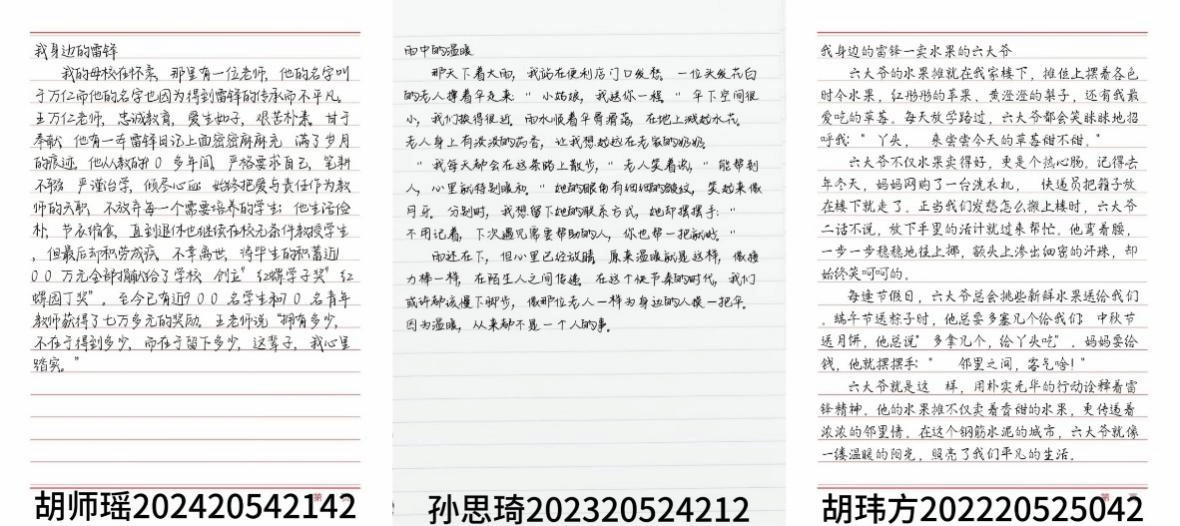 我身边的雷锋
我的母校在怀柔，那里有一位老师，他的名字叫
于万仁而他的名字也因为得到雷锋的传承而不平凡。
王万仁老师，忠诚教育，爱生如子，艰苦朴素，甘于
奉献，他有一本雷锋日记上面密密麻麻充 满了岁月
的痕迹。他从教的10 多年间，严格要求自己，笔耕
不辍，严谨治学，倾尽心血，始终把爱与责任作为教
师的天职，不放弃每一个需要培养的学生；他生活俭
朴，节衣缩食，直到退休也继续在校无条件教授学生
，但最后却积劳成疾，不幸离世，将毕生的积蓄近1
00 万元全部捐献给了学校，创立"红烛学子奖"红
烛园丁奖"，至今已有近900 名学生和70 名青年
教师获得了七万多元的奖励。王老师说"拥有多少，
不在于得到多少，而在于留下多少，这辈子，我心里
踏实。"
胡师瑶202420542142
雨中的温暖
那天下着大雨，我站在便利店门口发愁。一位头发花白
的老人撑着伞走来："小姑娘，我送你一程。"伞下空间很
小，我们挨得很近，雨水顺着伞骨滑落，在地上溅起水花。
老人身上有淡淡的药香，让我想起远在老家的奶奶。
"我每天都会在这条路上散步，"老人笑着说，"能帮到
人，心里就特别暖和。"她的眼角有细细的皱纹，笑起来像
月牙。分别时，我想留下她的联系方式，她却摆摆手："
不用记着，下次遇见需要帮助的人，你也帮一把就成。"
雨还在下，但心里已经放晴。原来温暖就是这样，像接
力棒一样，在陌生人之间传递。在这个快节奏的时代，我们
或许都该慢下脚步，像那位老人一样为身边的人撑一把伞。
因为温暖，从来都不是一个人的事。
孙思琦202320524212
我身边的雷锋—卖水果的六大爷
六大爷的水果摊就在我家楼下，摊位上摆着各色
时令水果，红彤彤的苹果、黄澄澄的梨子，还有我最
爱吃的草莓。每天放学路过，六大爷都会笑眯眯地招
呼我："丫头， 来尝尝今天的草莓甜不甜。"
六大爷不仅水果卖得好，更是个热心肠。记得去
年冬天，妈妈网购了一台洗衣机， 快递员把箱子放
在楼下就走了。正当我们发愁怎么搬上楼时，六大爷
二话不说，放下手里的活计就过来帮忙。他弯着腰，
一步一步稳稳地往上挪，额头上渗出细密的汗珠，却
始终笑呵呵的。
每逢节假日，六大爷总会挑些新鲜水果送给我们
。端午节送粽子时，他总要多塞几个给我们；中秋节
送月饼，他总说"多拿几个，给丫头吃"。妈妈要给
钱，他就摆摆手：" 邻里之间，客气啥！"
六大爷就是这 样，用朴实无华的行动诠释着雷
锋精神。他的水果摊不仅卖着香甜的水果，更传递着
浓浓的邻里情。在这个钢筋水泥的城市，六大爷就像
一缕温暖的阳光，照亮了我们平凡的生活。
胡玮方202220525042